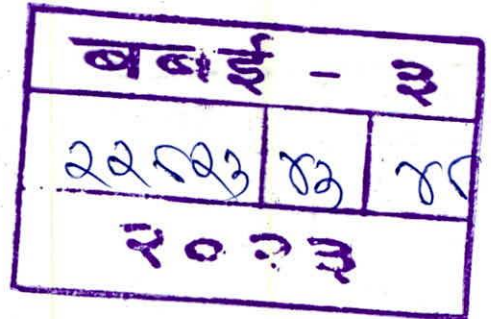 बबई - ३
२२८२३ ४३ ४८
२०२३